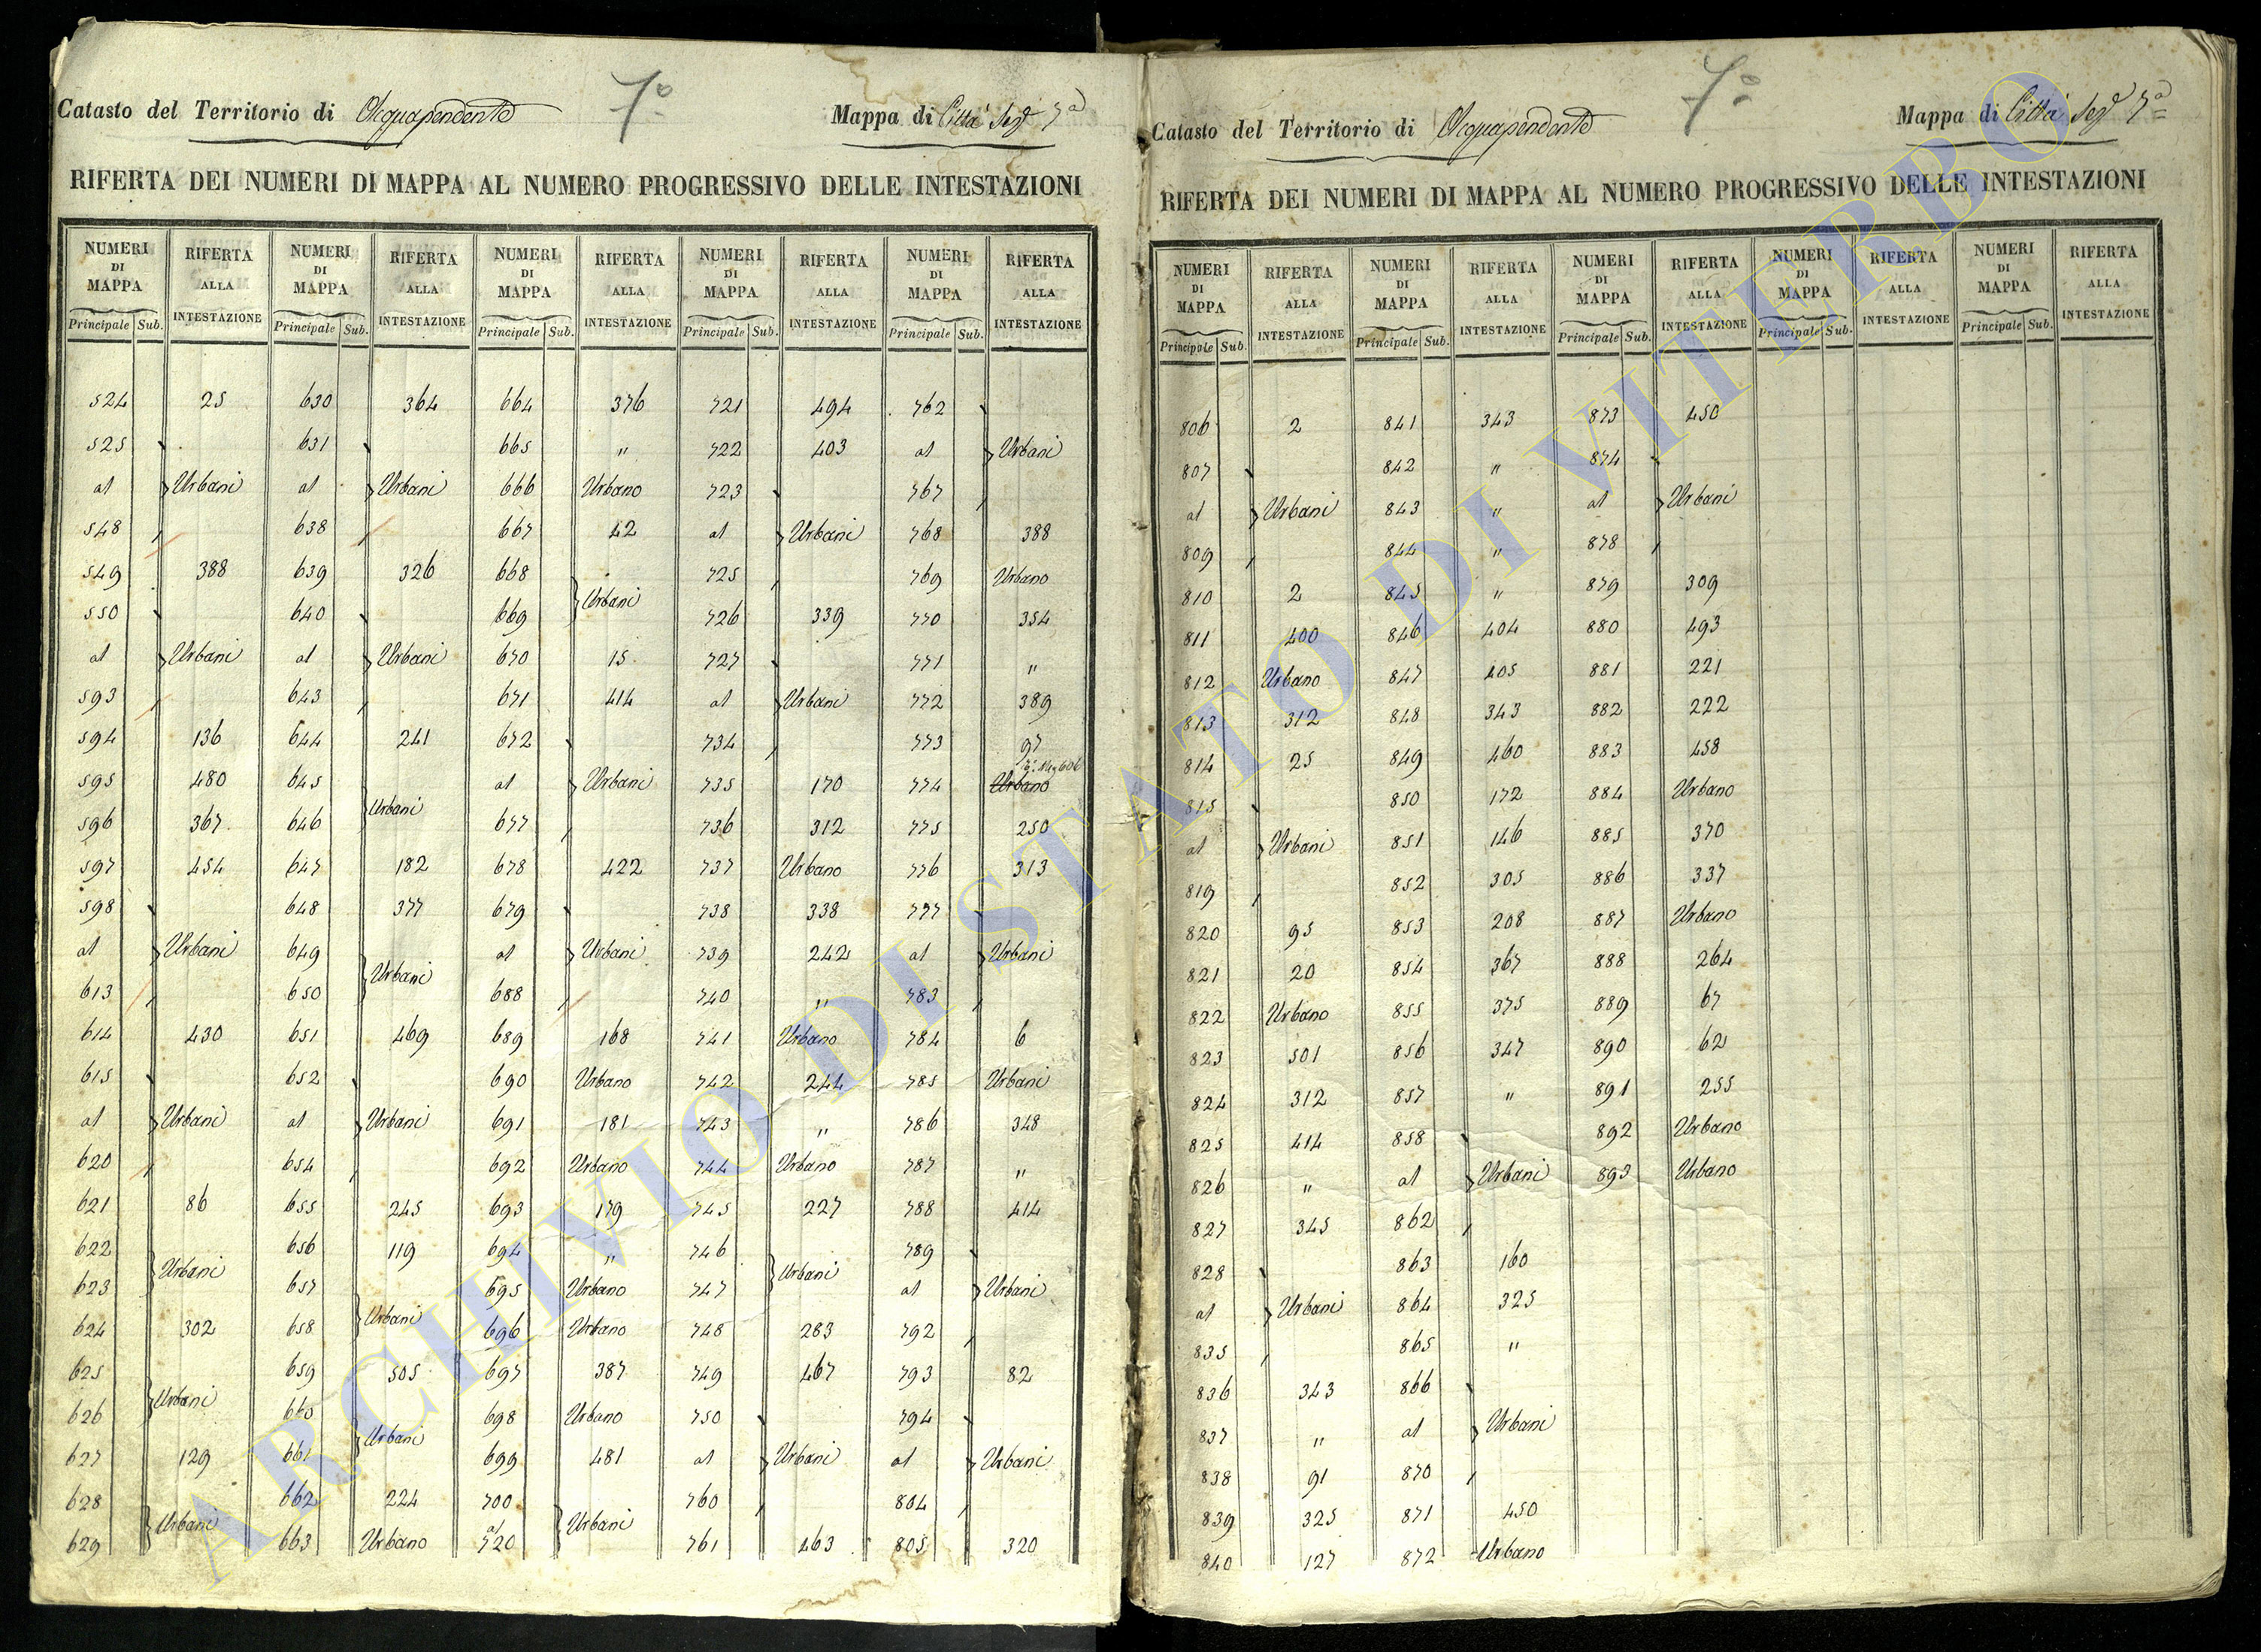 7°
Catasto del Territorio di Acquapendente
Mappa di Città Sez 7a
RIFERTA DEI NUMERI DI MAPPA AL NUMERO PROGRESSIVO DELLE INTESTAZIONI
NUMERI DI MAPPA RIFERTA ALLA INTESTAZIONE NUMERI DI MAPPA RIFERTA ALLA INTESTAZIONE NUMERI DI MAPPA RIFERTA ALLA INTESTAZIONE NUMERI DI MAPPA RIFERTA ALLA INTESTAZIONE NUMERI DI MAPPA RIFERTA ALLA INTESTAZIONE
Principale Sub. Principale Sub. Principale Sub. Principale Sub. Principale Sub.
524 25 630 364 664 376 721 494 762
525 631 665 " 722 403 al Urbani
al Urbani al Urbani 666 Urbano 723 767
548 638 667 42 al Urbani 768 388
549 388 639 326 668 725 769 Urbano
550 640 669 Urbani 726 339 770 354
al Urbani al Urbani 670 15 727 771 "
593 643 671 414 al Urbani 772 389
594 136 644 241 672 734 773 97
595 480 645 al Urbani 735 170 774 Urbano
596 367 646 Urbani 677 736 312 775 250
597 454 647 182 678 422 737 Urbano 776 313
598 648 377 679 738 338 777
al Urbani 649 al Urbani 739 242 al Urbani
613 650 Urbani 688 740 " 783
614 430 651 469 689 168 741 Urbano 784 6
615 652 690 Urbano 742 244 785 Urbani
al Urbani al Urbani 691 181 743 " 786 348
620 654 692 Urbano 744 Urbano 787 "
621 86 655 245 693 179 745 227 788 414
622 656 119 694 " 746 789
623 Urbani 657 695 Urbano 747 Urbani al Urbani
624 302 658 Urbani 696 Urbano 748 283 792
625 659 505 697 387 749 467 793 82
626 Urbani 660 698 Urbano 750 794
627 129 661 Urbani 699 481 al Urbani al Urbani
628 662 224 700 760 804
629 Urbani 663 Urbano al 720 Urbani 761 463 805 320
7°
Catasto del Territorio di Acquapendente
Mappa di Città Sez 7a
RIFERTA DEI NUMERI DI MAPPA AL NUMERO PROGRESSIVO DELLE INTESTAZIONI
NUMERI DI MAPPA RIFERTA ALLA INTESTAZIONE NUMERI DI MAPPA RIFERTA ALLA INTESTAZIONE NUMERI DI MAPPA RIFERTA ALLA INTESTAZIONE NUMERI DI MAPPA RIFERTA ALLA INTESTAZIONE NUMERI DI MAPPA RIFERTA ALLA INTESTAZIONE
Principale Sub. Principale Sub. Principale Sub. Principale Sub. Principale Sub.
806 2 841 343 873 450
807 842 " 874
al Urbani 843 " al Urbani
809 844 " 878
810 2 845 " 879 309
811 400 846 404 880 493
812 Urbano 847 405 881 221
813 312 848 343 882 222
814 25 849 460 883 458
815 850 172 884 Urbano
al Urbani 851 146 885 370
819 852 305 886 337
820 95 853 208 887 Urbano
821 20 854 367 888 264
822 Urbano 855 375 889 67
823 501 856 347 890 62
824 312 857 " 891 255
825 414 858 892 Urbano
826 " al Urbani 893 Urbano
827 345 862
828 863 160
al Urbani 864 325
835 865 "
836 343 866
837 " al Urbani
838 91 870
839 325 871 450
840 127 872 Urbano
ARCHIVIO DI STATO DI VITERBO